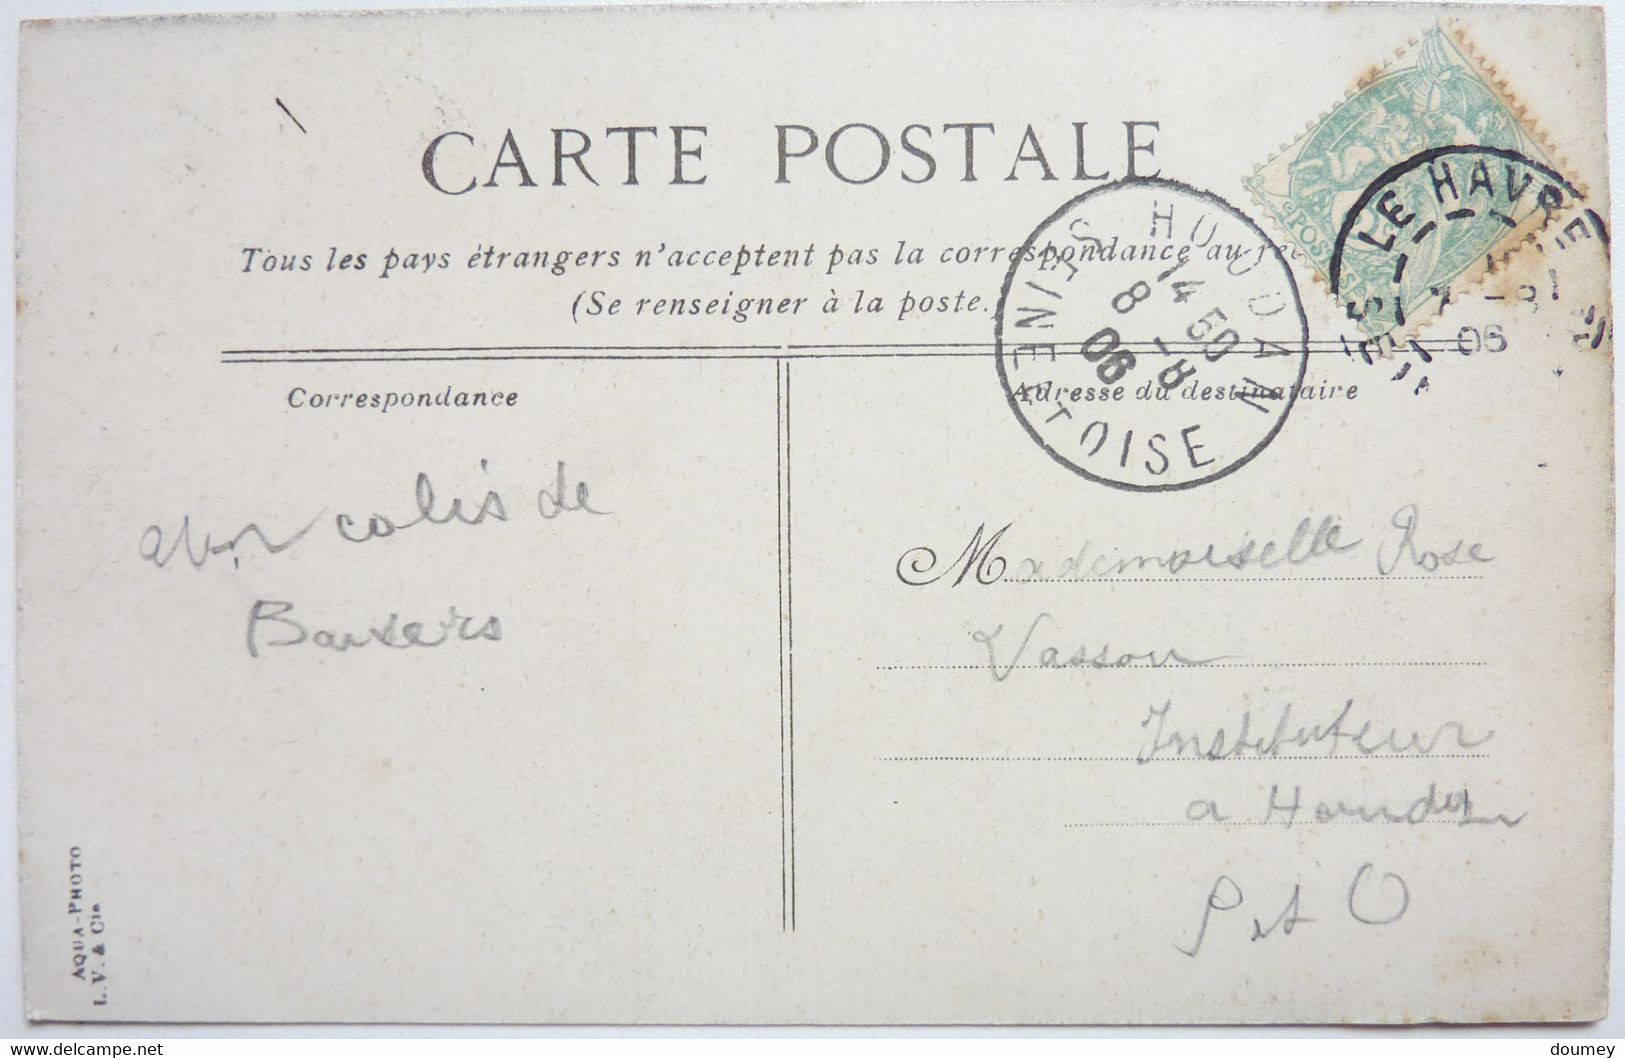 CARTE POSTALE
Tous les pays étrangers n'acceptent pas la correspondance au
(Se renseigner à la poste.)
Correspondance
Adresse du destinataire
HOUDAN
14 50
8 - 8
06
SEINE ET OISE
LE HAVRE
7 - 8
06
POSTES
colis de
Baisers
Mademoiselle Rose
Vasson
Instituteur
a Houdan
S et O
AQUA-PHOTO
L. V. & Cie
delcampe.net
doumey